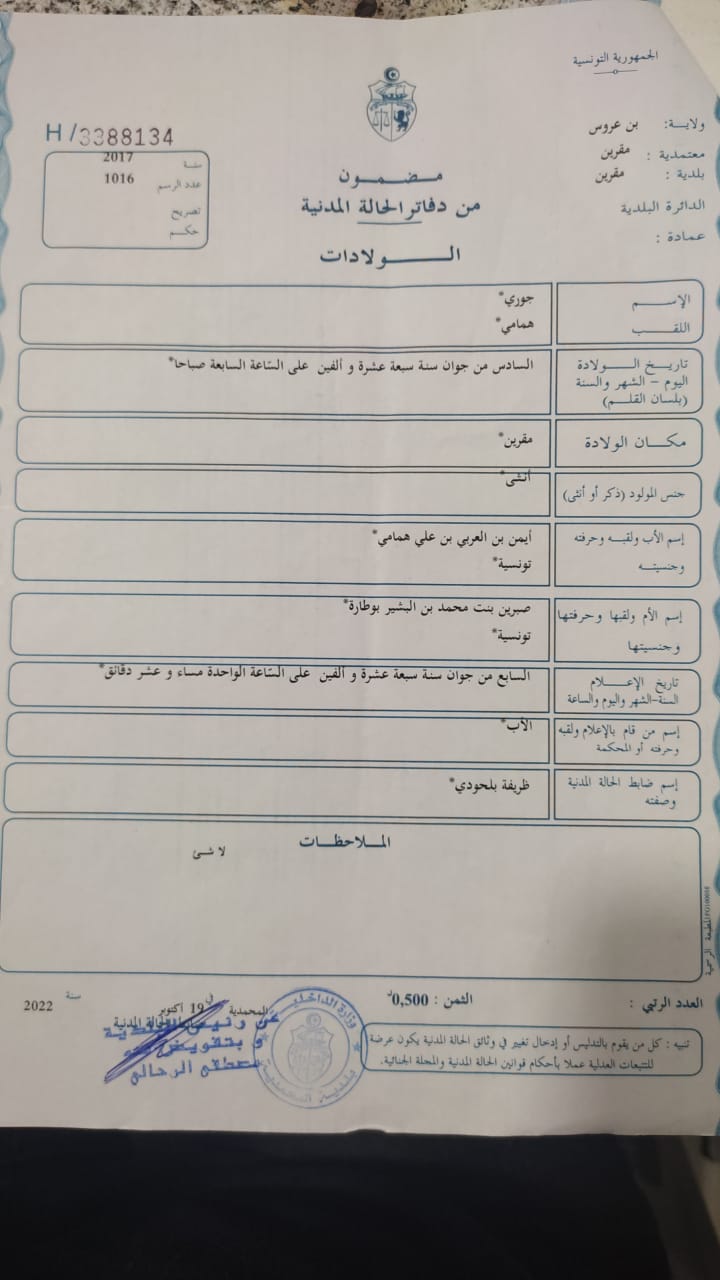 الجمهورية التونسية
ولايـــة: بن عروس
معتمدية : مقرين
بلدية : مقرين
الدائرة البلدية
عمادة :
H/3388134
سنة 2017
عدد الرسم 1016
تصريح
حكم
مضمون
من دفاتر الحالة المدنية
الـولادات
الإسم جوري*
اللقب همامي*
تاريخ الولادة
اليوم – الشهر والسنة
(بلسان القلم)
السادس من جوان سنة سبعة عشرة و ألفين على السّاعة السابعة صباحا*
مكان الولادة مقرين*
جنس المولود (ذكر أو أنثى) أنثى*
إسم الأب ولقبه وحرفته أيمن بن العربي بن علي همامي*
وجنسيته تونسية*
إسم الأم ولقبها وحرفتها صبرين بنت محمد بن البشير بوطارة*
وجنسيتها تونسية*
تاريخ الإعلام
السنة-الشهر واليوم والساعة
السابع من جوان سنة سبعة عشرة و ألفين على السّاعة الواحدة مساء و عشر دقائق*
إسم من قام بالإعلام ولقبه
وحرفته أو المحكمة
الأب*
إسم ضابط الحالة المدنية
وصفته
ظريفة بلحودي*
الملاحظات
لا شئ
المطبعة الرسمية
العدد الرتبي :
الثمن : 0,500د
المحمدية في 19 أكتوبر سنة 2022
الحالة المدنية
عن رئيس البلدية
و بتفويض منه
مصطفى الرحالي
وزارة الداخلية
بلدية المحمدية
تنبيه : كل من يقوم بالتدليس أو إدخال تغيير في وثائق الحالة المدنية يكون عرضة
للتتبعات العدلية عملا بأحكام قوانين الحالة المدنية والمجلة الجنائية.